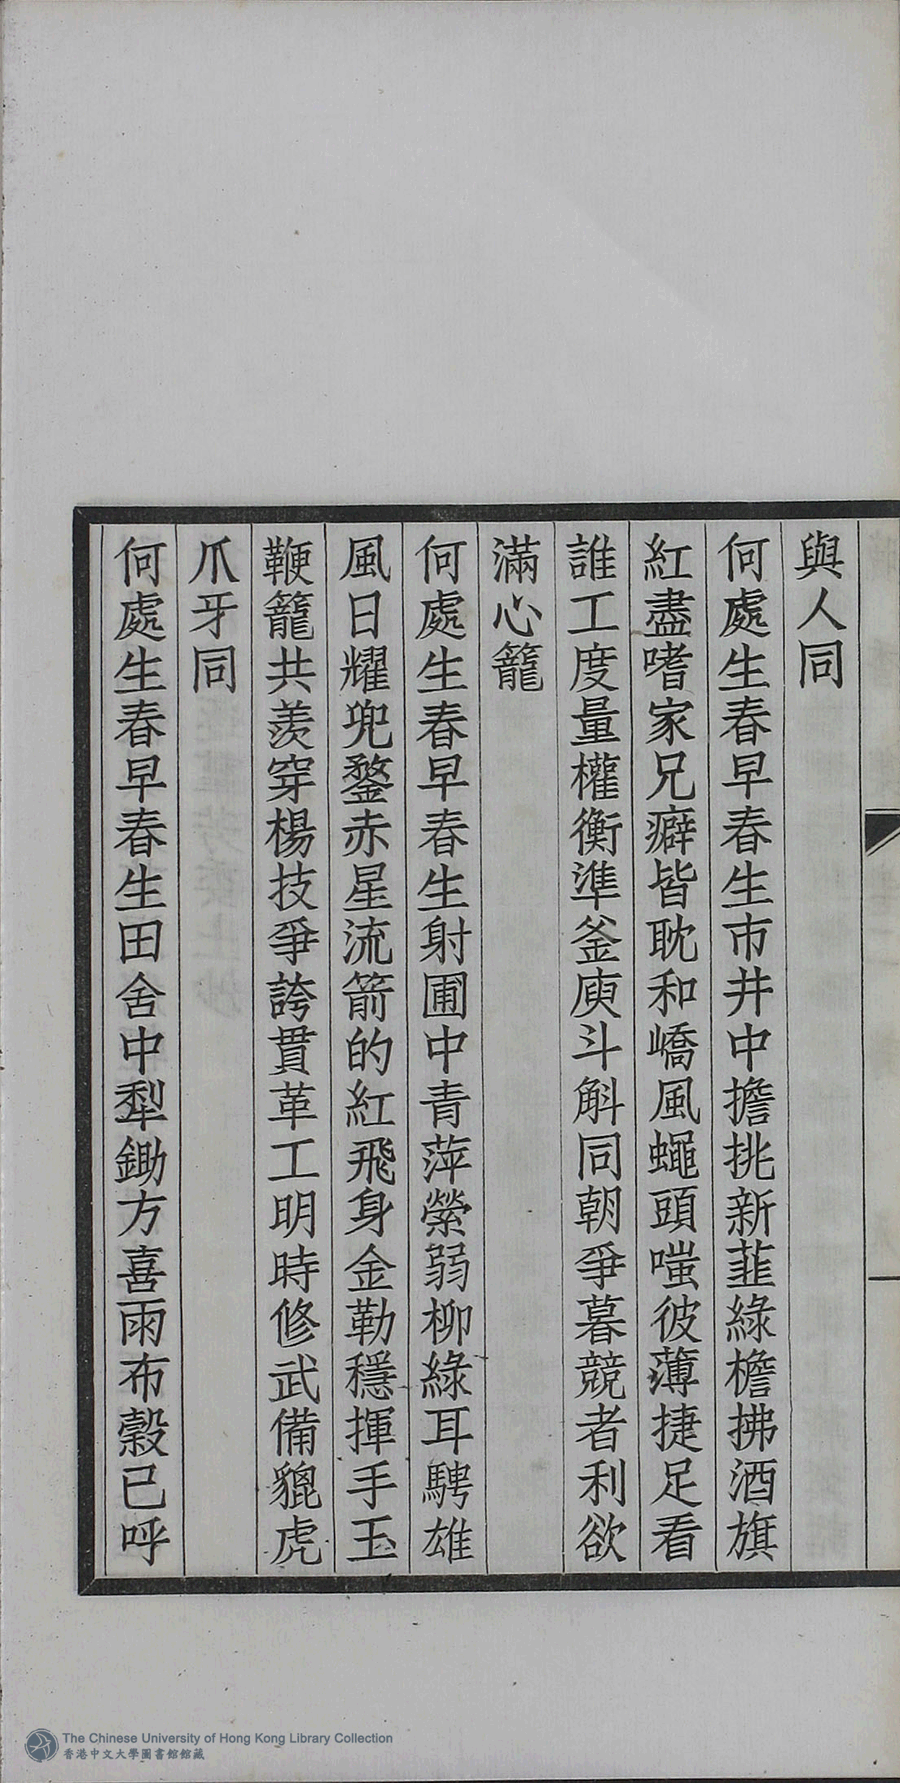 與人同
何處生春早春生市井中擔挑新韮綠檐拂酒旗
紅盡嗜家兄癖皆耽和嶠風蠅頭嗤彼薄捷足看
誰工度量權衡準釜庾斗斛同朝爭暮競者利欲
滿心籠
何處生春早春生射圃中青萍縈弱柳綠耳騁雄
風日耀兜鍪赤星流箭的紅飛身金勒穩揮手玉
鞭籠共羨穿楊技爭誇貫革工明時修武備貔虎
爪牙同
何處生春早春生田舍中犁鋤方喜雨布穀已呼
The Chinese University of Hong Kong Library Collection
香港中文大學圖書館館藏